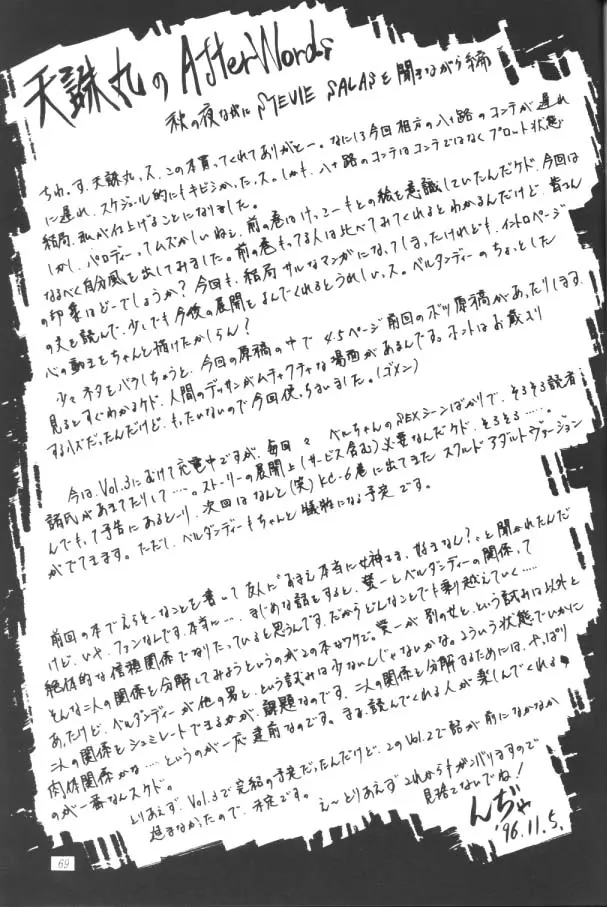 天誅丸のAfterWords
秋の夜ながに STEVIE SALASを聞きながら編
ちわっす、天誅丸っス、この本買ってくれてありがとー。なにに今回相方の八十路のコンテが遅れ
に遅れ、スケジュール的にもキビシかったっス。しかも、八十路のコンテはコンテではなくプロット状態
結局、私が仕上げることになりました。
しかし、パロディーってムズかしいねぇ、前の巻はけっこーもとの絵を意識していたんだケド、今回は
なるべく自分風を出してみました。前の巻もってる人は比べてみてくれるとわかるんだけど、皆さん
の印象はどーでしょうか？今回も、結局サルなマンガになってしまったけれども、イントロページ
の文を読んで、少しでも今後の展開をよんでくれるとうれしいっス。ベルダンディーのちょっとした
心の動きをちゃんと描けたかしらん？
少々ネタをバラしちゃうと、今回の原稿の中で 4.5ページ前回のボツ原稿があったりします。
見るとすぐわかるケド、人間のデッサンがムチャクチャな場面があるんです。ホントはお蔵入り
するハズだったんだけど、もったいないので今回使っちまいました。(ゴメン)
今は、Vol.3にむけて充電中ですが、毎回々 ベルちゃんのSEXシーンばかりで、そろそろ読者
諸氏があきてたりして…。ストーリーの展開上(サービス含む)必要なんだケド、そろそろ……。
んでもって予告にあるとーり、次回はなんと(笑)KC-6巻に出てきた スクルド アダルトヴァージョン
がでてきます。ただし、ベルダンディーもちゃんと犠牲になる予定です。
前回の本でえらそーなことを書いて友人に"おまえ本当に女神さま、好きなん？"と聞かれたんだ
けど、いや、ファンなんです、本当に…。まじめな話をすると、螢一とベルダンディーの関係って
絶体的な信頼関係でなりたっていると思うんです。だからどんなことでも乗り越えていく……
そんな二人の関係を分解してみようというのがこの本なワケで。螢一が別の女と、という試みは以外と
あったけど、ベルダンディーが他の男と、という試みは少ないんじゃないかな。こういう状態でいかに
二人の関係をシュミレートできるかが、課題なのです。二人の関係を分解するためには、やっぱり
肉体関係かな…というのが一応建前なのです。まぁ、読んでくれる人が楽しんでくれる
のが一番なんスケド。
とりあえず、Vol.3で完結の予定だったんだけど、このVol.2で話が前になかなか
進まなかったので、未定です。
え〜とりあえずこれからもガンバリますので
見捨てないでね！
んぢゃ
'96.11.5.
69